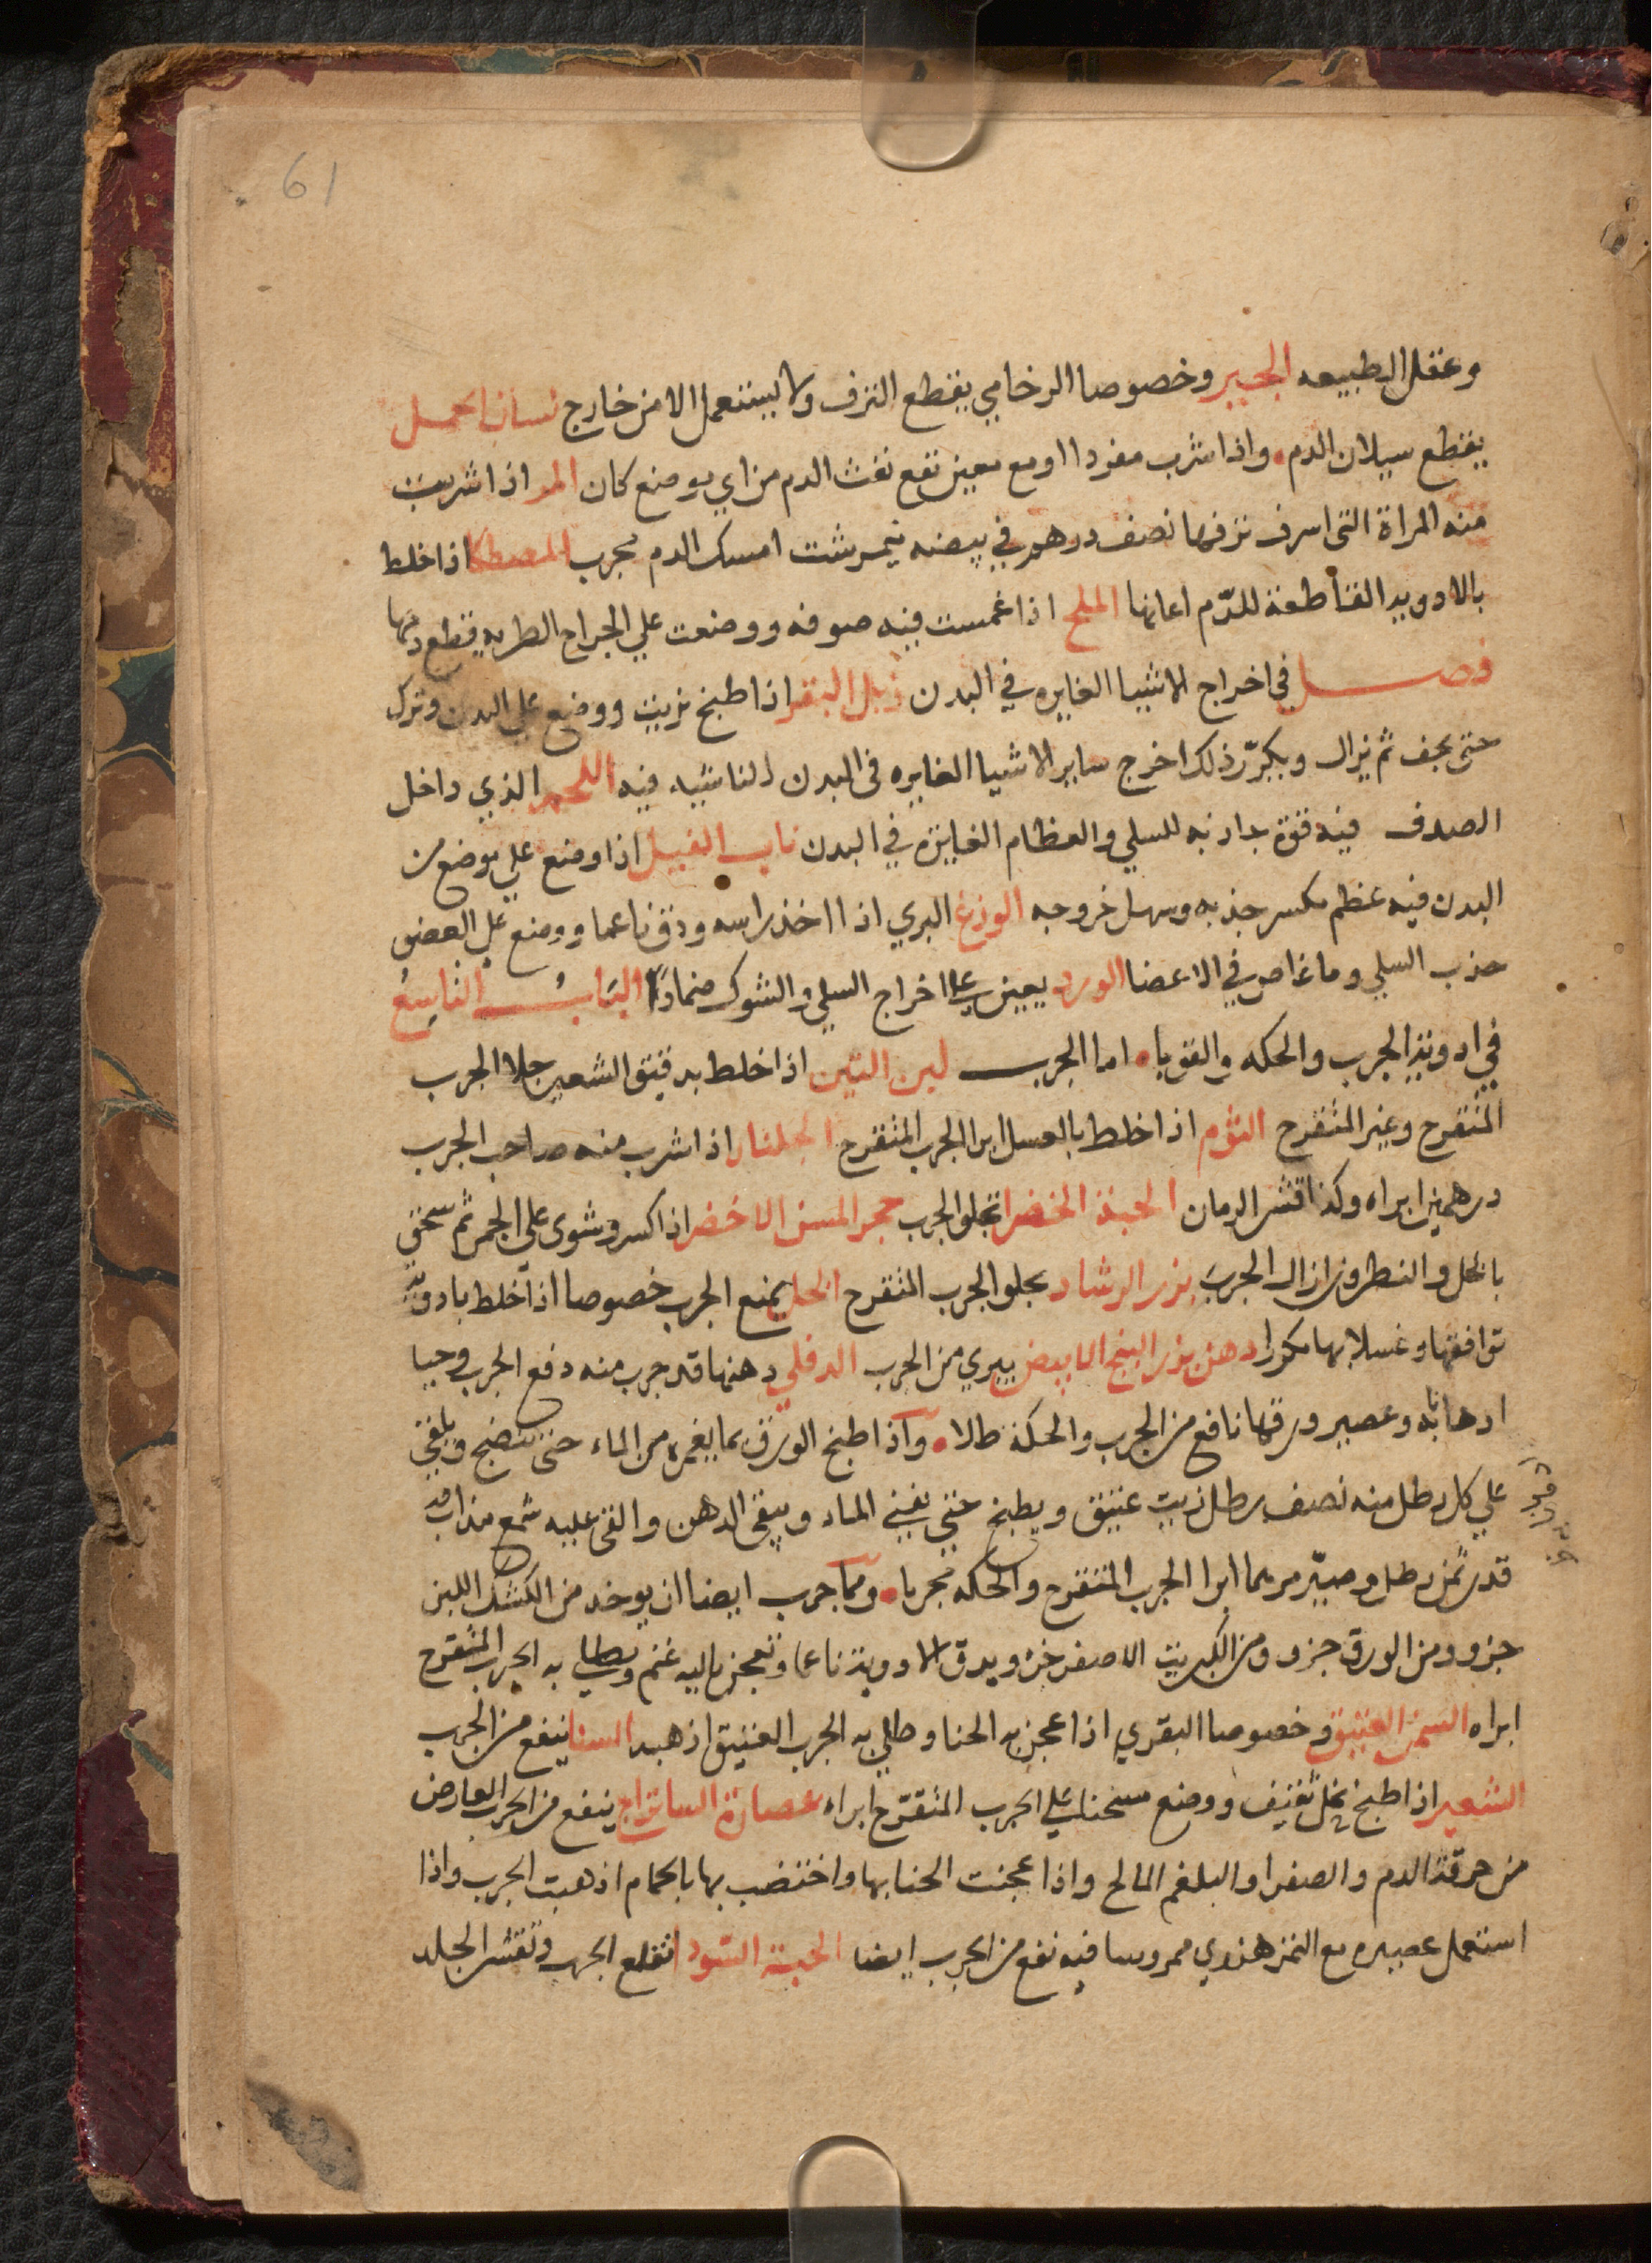 61
وعقل الطبيعه الجبير وخصوصا الرخامي يقطع النزف ولا يستعمل الا من خارج لسان الحمل
يقطع سيلان الدم واذا شرب مفردا او مع معين نفع نفث الدم من اي موضع كان المر اذا شربت
منه المراة التي اسرف نزفها نصف درهم في بيضه نيمرشت امسك الدم مجرب المصطكا اذا خلط
بالادويه القاطعة للدّم اعانها الملح اذا غمست فيه صوفه ووضعت علي الجراح الطريه قطع دمها
فصل في اخراج الاشيا الغايره في البدن زبل البقر اذا طبخ بزيت ووضع علي البدن وترك
حتي يجف ثم يزال ويكرّر ذلك اخرج ساير الاشيا الغايره في البدن الناشبه فيه اللحم الذي داخل
الصدف فيه قوة جاذبه للسلي والعظام الغايره في البدن ناب الفيل اذا وضع علي موضع من
البدن فيه عظم مكسر جذبه وسهل خروجه الوزغ البري اذا اخذ راسه ودق ناعما ووضع علي العضو
جذب السلي وما غاص في الاعضا الورد يعين علي اخراج السلي والشوك ضمادًا الباب التاسع
في ادوية الجرب والحكه والقوبا اما الجرب لبن التين اذا خلط بدقيق الشعير جلا الجرب
المتقرح وغير المتقرح الثوم اذا خلط بالعسل ابرا الجرب المتقرح الجلنار اذا شرب منه صاحب الجرب
درهمين ابراه وكذا قشر الرمان الحبة الخضرا تجلو الجرب حجر المسن الاخضر اذا كسر وشوي علي الجمر ثم سحق
بالخل والنطرون ازال الجرب بزر الرشاد يجلو الجرب المتقرح الخل يمنع الجرب خصوصا اذا خلط بادوية
توافقها وغسلا بها مكررا دهن بزر البنج الابيض يبري من الجرب الدفلي دهنها قد جرب منه دفع الجرب وحيا
ادهانا به وعصير ورقها نافع من الجرب والحكة طلاء واذا طبخ الورق بما يغمره من الماء حتي ينضج ويلقي
علي كل رطل منه نصف رطل زيت عتيق ويطبخ حتي يفني الماء ويبقي الدهن والقي عليه شمع مذاب
قدر ثمن رطل وصيّر مرهما ابرا الجرب المتقرح والحكه مجربا ومما جرب ايضا ان يوخد من الكشك اللبن
جزو ومن الورق جزو ومن الكبريت الاصفر جزو ويدق الادوية ناعما وتعجن بالية غنم ويطلي به الجرب المتقرح
ابراه السمن العتيق وخصوصا البقري اذا عجن به الحنا وطلي به الجرب العتيق اذهبه السنا ينفع من الجرب
الشعير اذا طبخ بخل ثقيف ووضع سخنا علي الجرب المتقرّح ابراه عصارة الساتراج ينفع من الجرب العارض
من حرقة الدم والصفرا والبلغم المالح واذا عجنت الحنا بها واختضب بها بالحمام اذهبت الجرب واذا
استعمل عصيره مع التمر هندي ممروسا فيه نفع من الجرب ايضا الحبة السّودا تقلع الجرب وتقشر الجلد